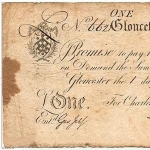 ONE
No. 662 Gloucest
Promise to pay
on Demand the
Gloucester the 1 d
£One. For Charle
Entd.